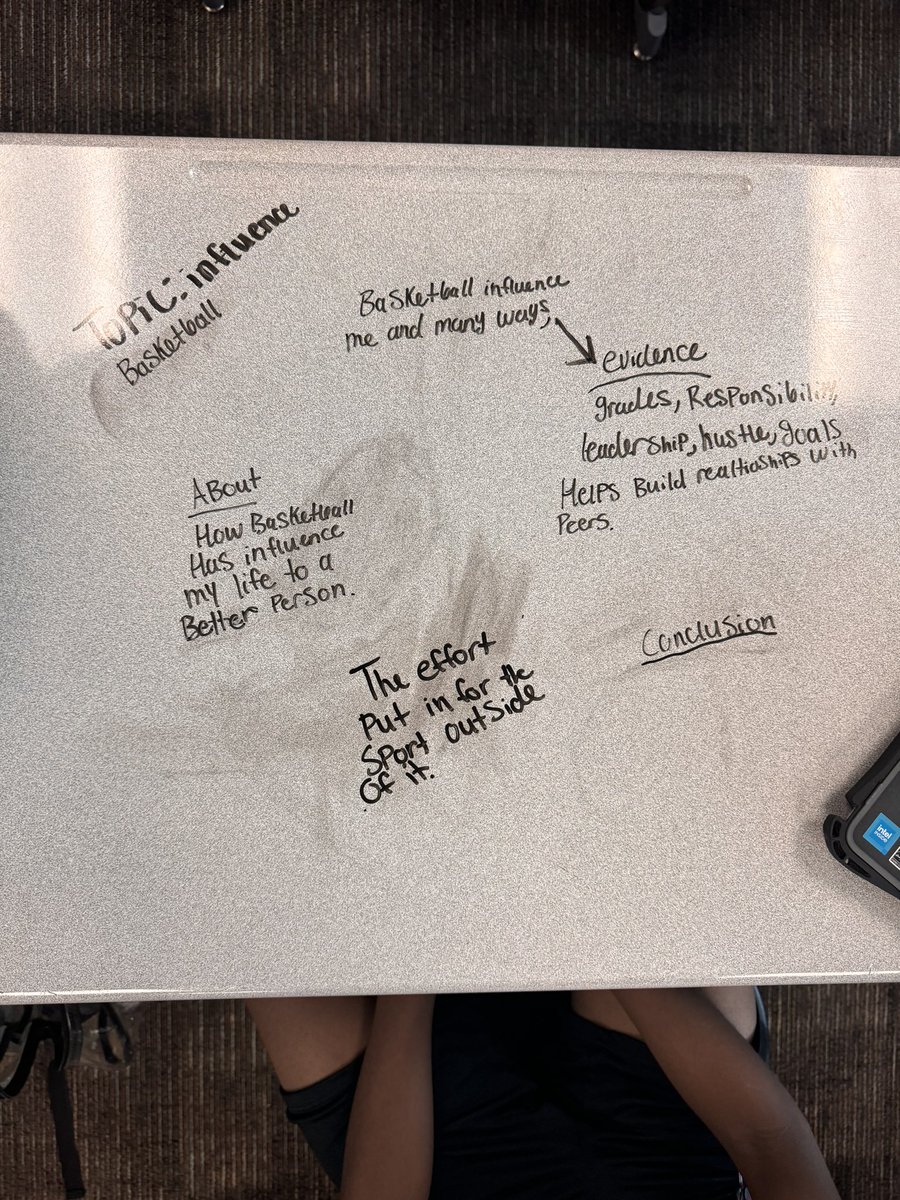 TOPIC: influence
Basketball
Basketball influence
me and many ways,
evidence
grades, Responsibility,
leadership, hustle, goals
Helps Build realtioships with
Peers.
About
How Basketball
Has influence
my life to a
Better Person.
The effort
Put in for the
Sport outside
of it.
Conclusion
intel